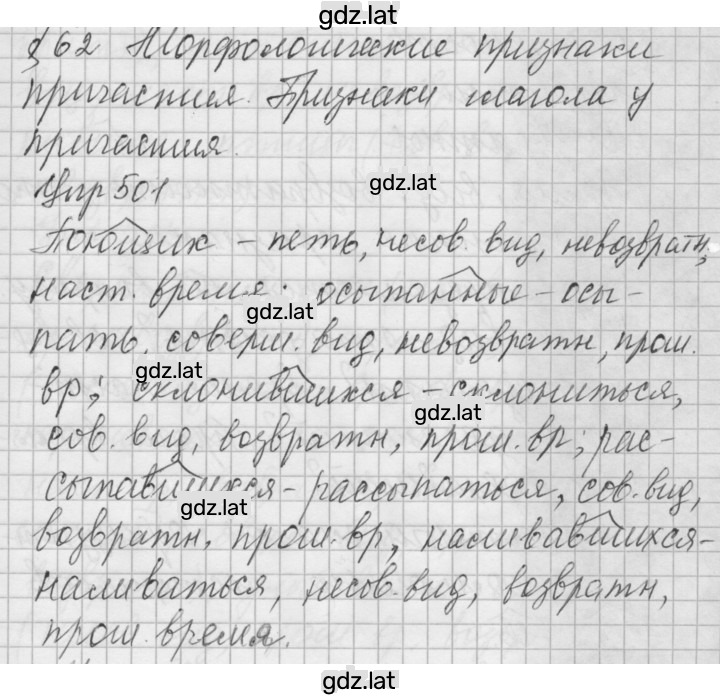 gdz.lat
§62 Морфологические признаки
причастия. Признаки глагола у
причастия.
gdz.lat
Упр 501
Поющих – петь, несов. вид, невозвратн,
наст. время; осыпанные – осы-
gdz.lat
пать, соверш. вид, невозвратн, прош.
gdz.lat
вр; склонившихся – склониться,
gdz.lat
сов. вид, возвратн, прош. вр; рас-
сыпавшихся – рассыпаться, сов. вид,
gdz.lat
возвратн. прош. вр, наливавшихся –
наливаться, несов. вид, возвратн,
прош. время.
gdz.lat